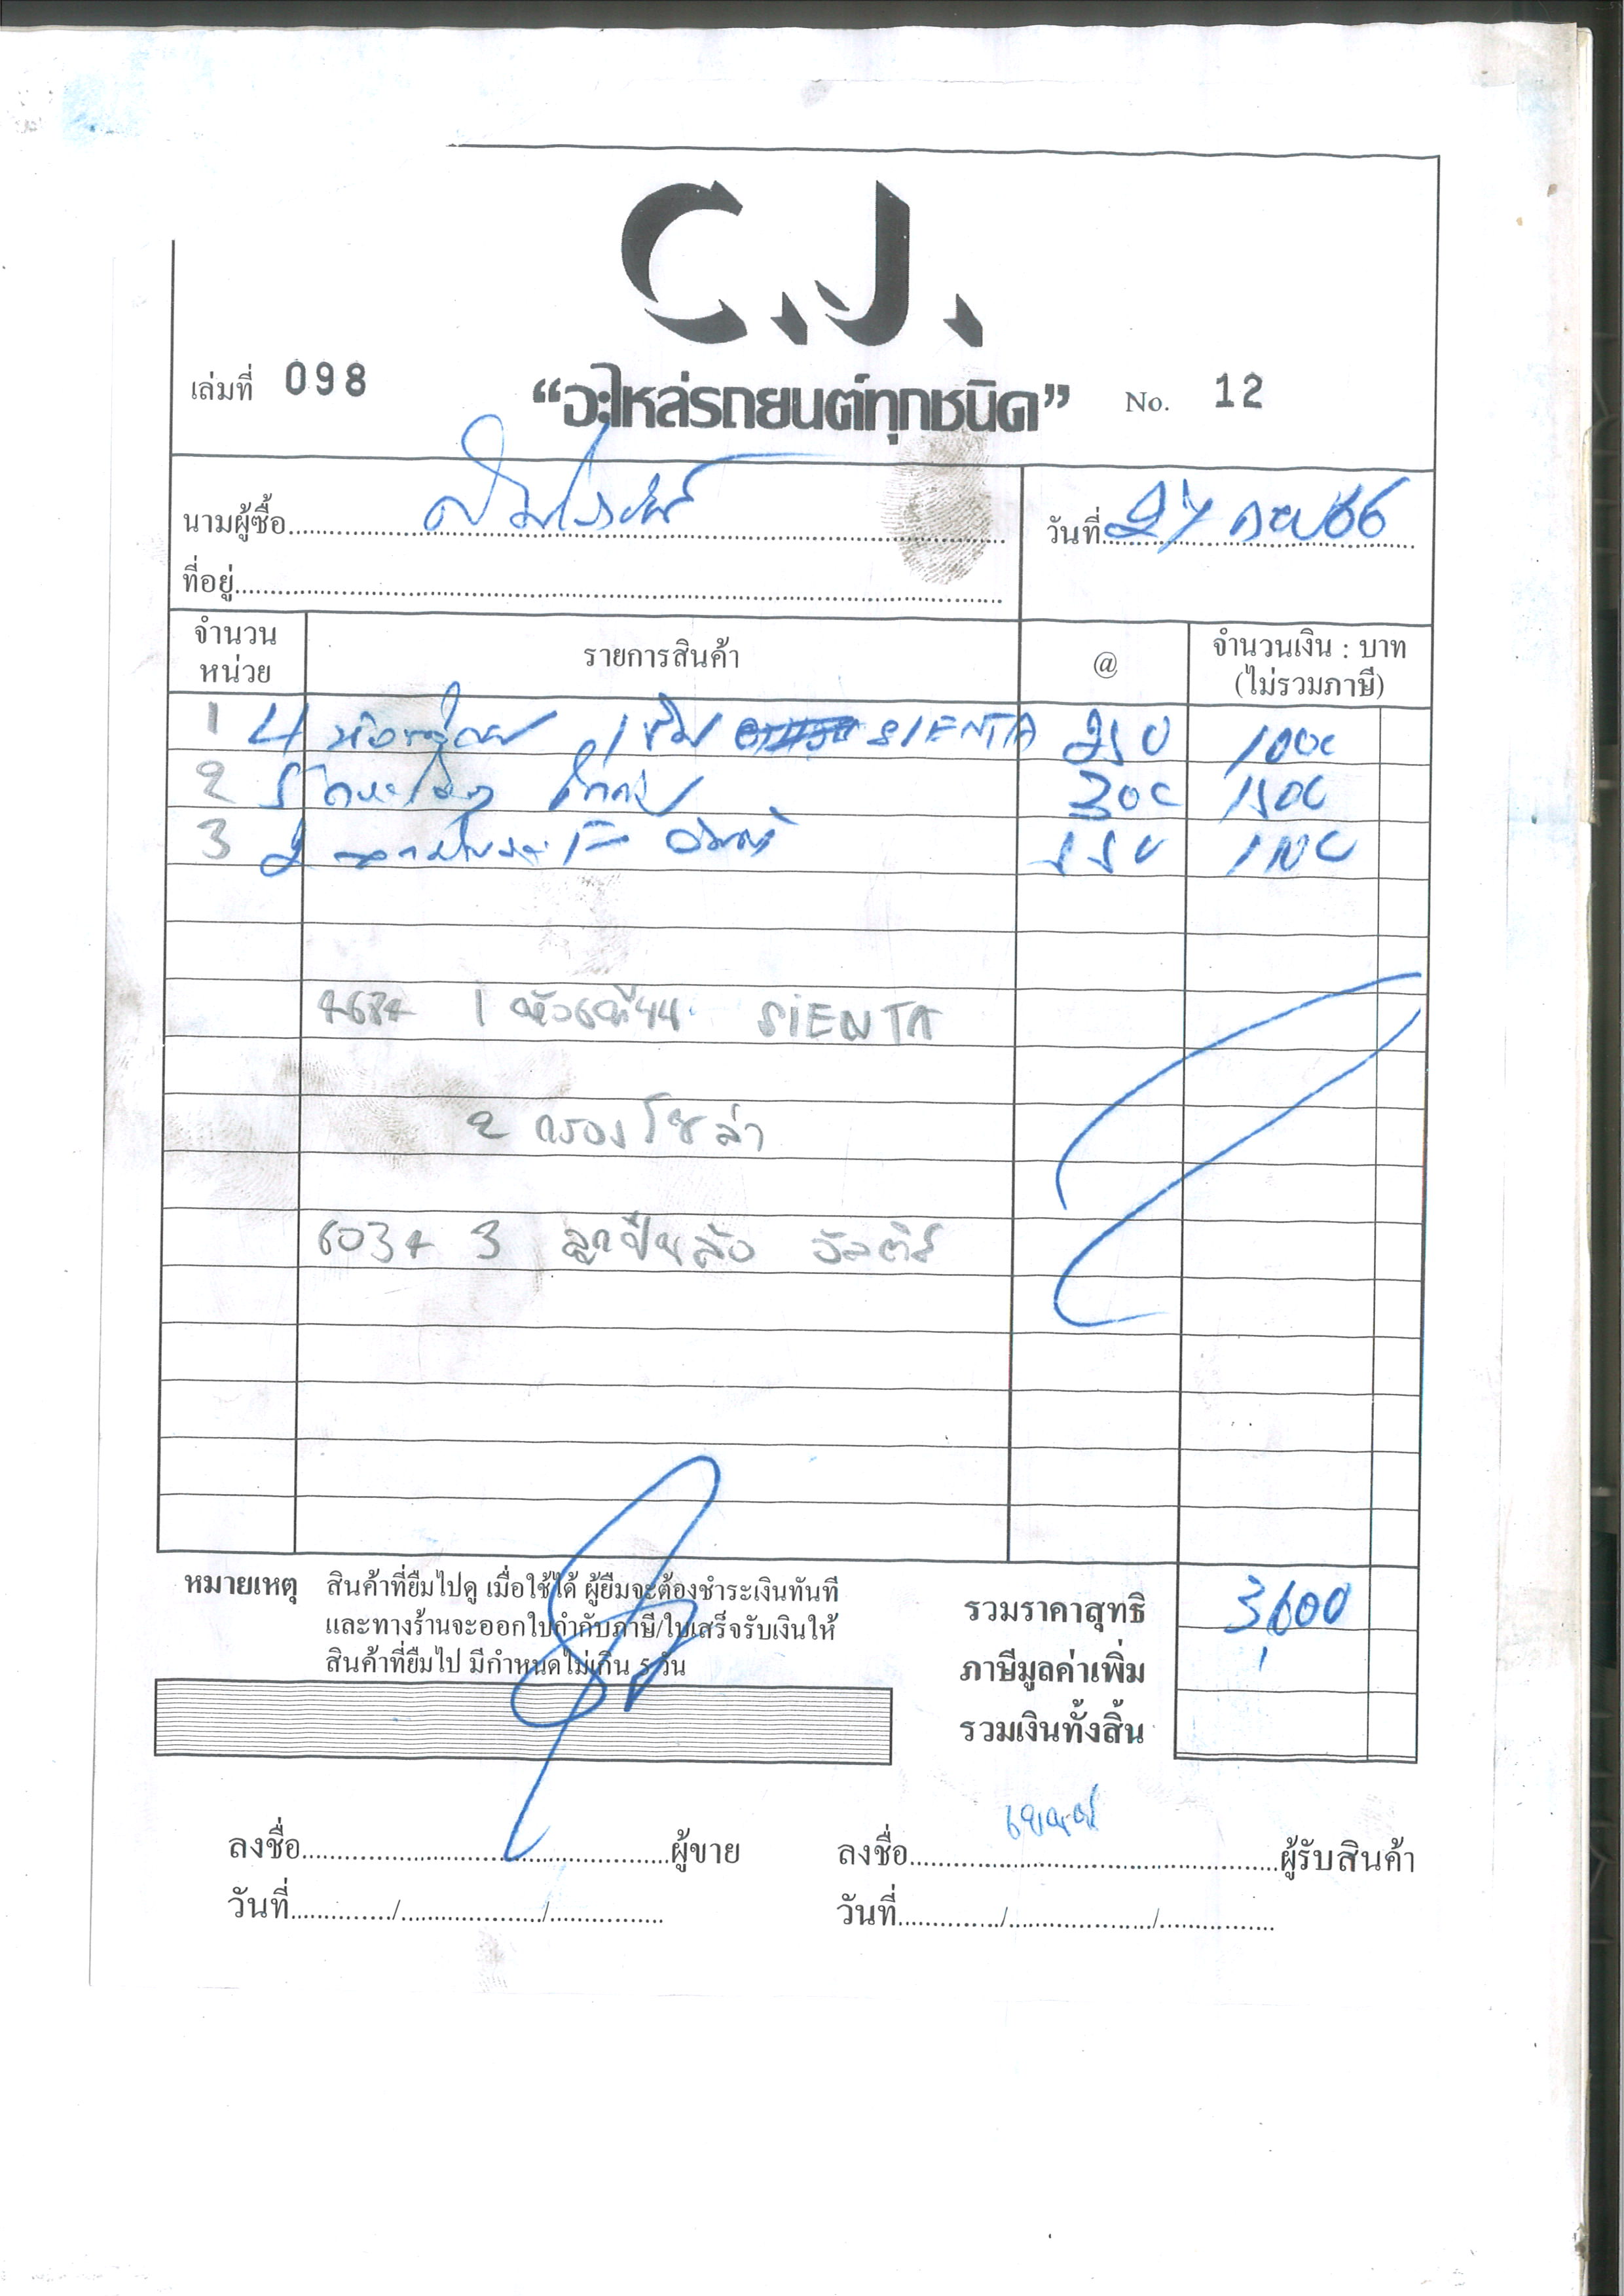 C.J.
เล่มที่ 098 “อะไหล่รถยนต์ทุกชนิด” No. 12
นามผู้ซื้อ วันที่ 27 กย 66
ที่อยู่
จำนวนหน่วย รายการสินค้า @ จำนวนเงิน : บาท (ไม่รวมภาษี)
1 4 SIENTA 250 1000
2 5 300 1500
3 2 550 1100
1 หัวเทียน SIENTA
2 กรองโซล่า
3 ลูกปืนล้อ อัลติส
หมายเหตุ สินค้าที่ยืมไปดู เมื่อใช้ได้ ผู้ยืมจะต้องชำระเงินทันที
และทางร้านจะออกใบกำกับภาษี/ใบเสร็จรับเงินให้
สินค้าที่ยืมไป มีกำหนดไม่เกิน 5 วัน
รวมราคาสุทธิ 3,600
ภาษีมูลค่าเพิ่ม
รวมเงินทั้งสิ้น
ลงชื่อ ผู้ขาย ลงชื่อ ผู้รับสินค้า
วันที่ / / วันที่ / /